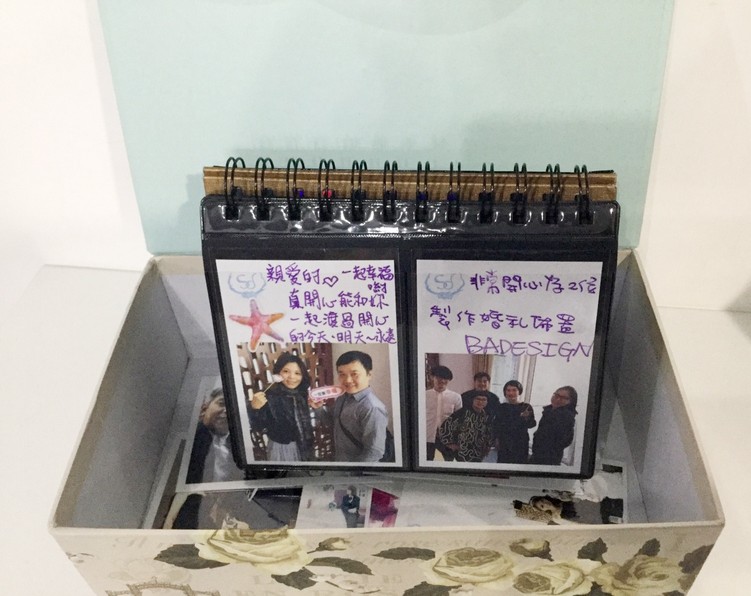 親愛的♡一起幸福
喲
真開心能和妳
一起渡過開心
的今天、明天～永遠
非常開心為2位
製作婚礼佈置
BADESIGN